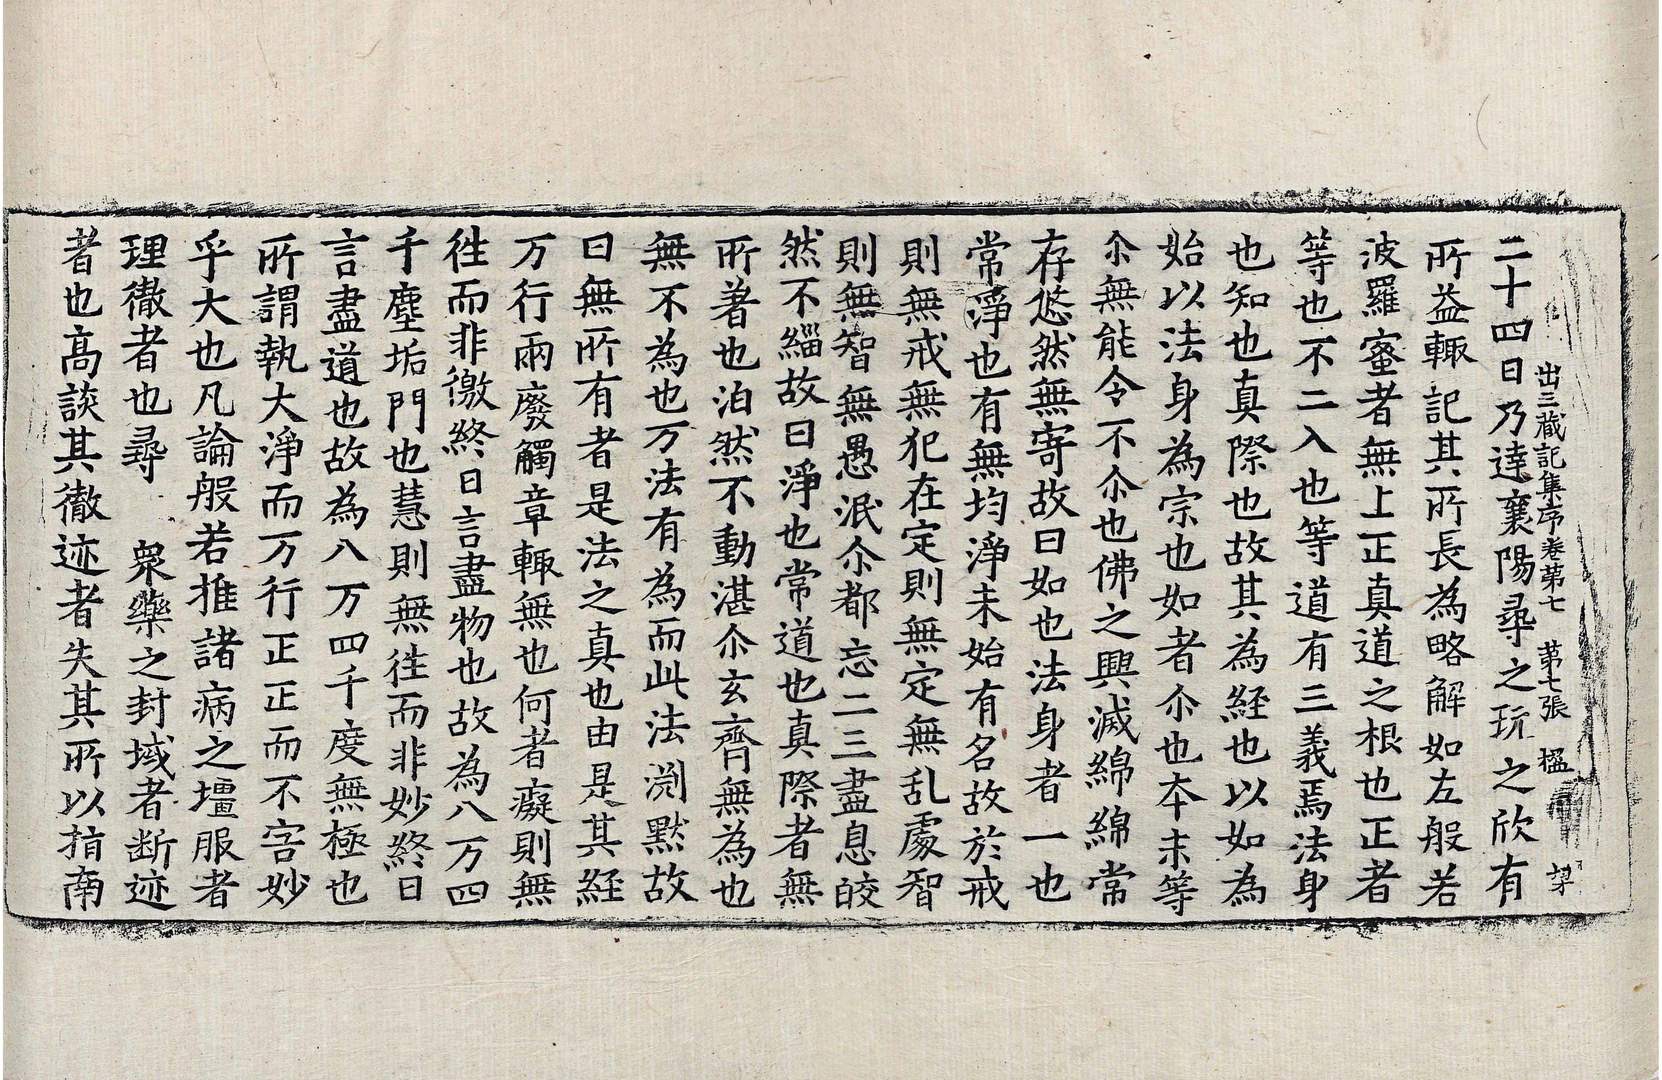 出三藏記集序卷第七　第七張　楹
二十四日乃達襄陽尋之玩之欣有
所益輙記其所長為略解如左般若
波羅蜜者無上正真道之根也正者
等也不二入也等道有三義焉法身
也如也真際也故其為経也以如為
始以法身為宗也如者尒也夲末等
尒無能令不尒也佛之興滅綿綿常
存悠然無寄故曰如也法身者一也
常淨也有無均淨未始有名故於戒
則無戒無犯在定則無定無乱處智
則無智無愚泯尒都忘二三盡息皎
然不緇故曰淨也常道也真際者無
所著也泊然不動湛尒玄齊無為也
無不為也万法有為而此法渕默故
曰無所有者是法之真也由是其経
万行兩廢觸章輙無也何者癡則無
徃而非徼終日言盡物也故為八万四
千塵垢門也慧則無徃而非妙終日
言盡道也故為八万四千度無極也
所謂執大淨而万行正正而不害妙
乎大也凡論般若推諸病之壃服者
理徹者也尋　衆藥之封域者断迹
者也高談其徹迹者失其所以指南